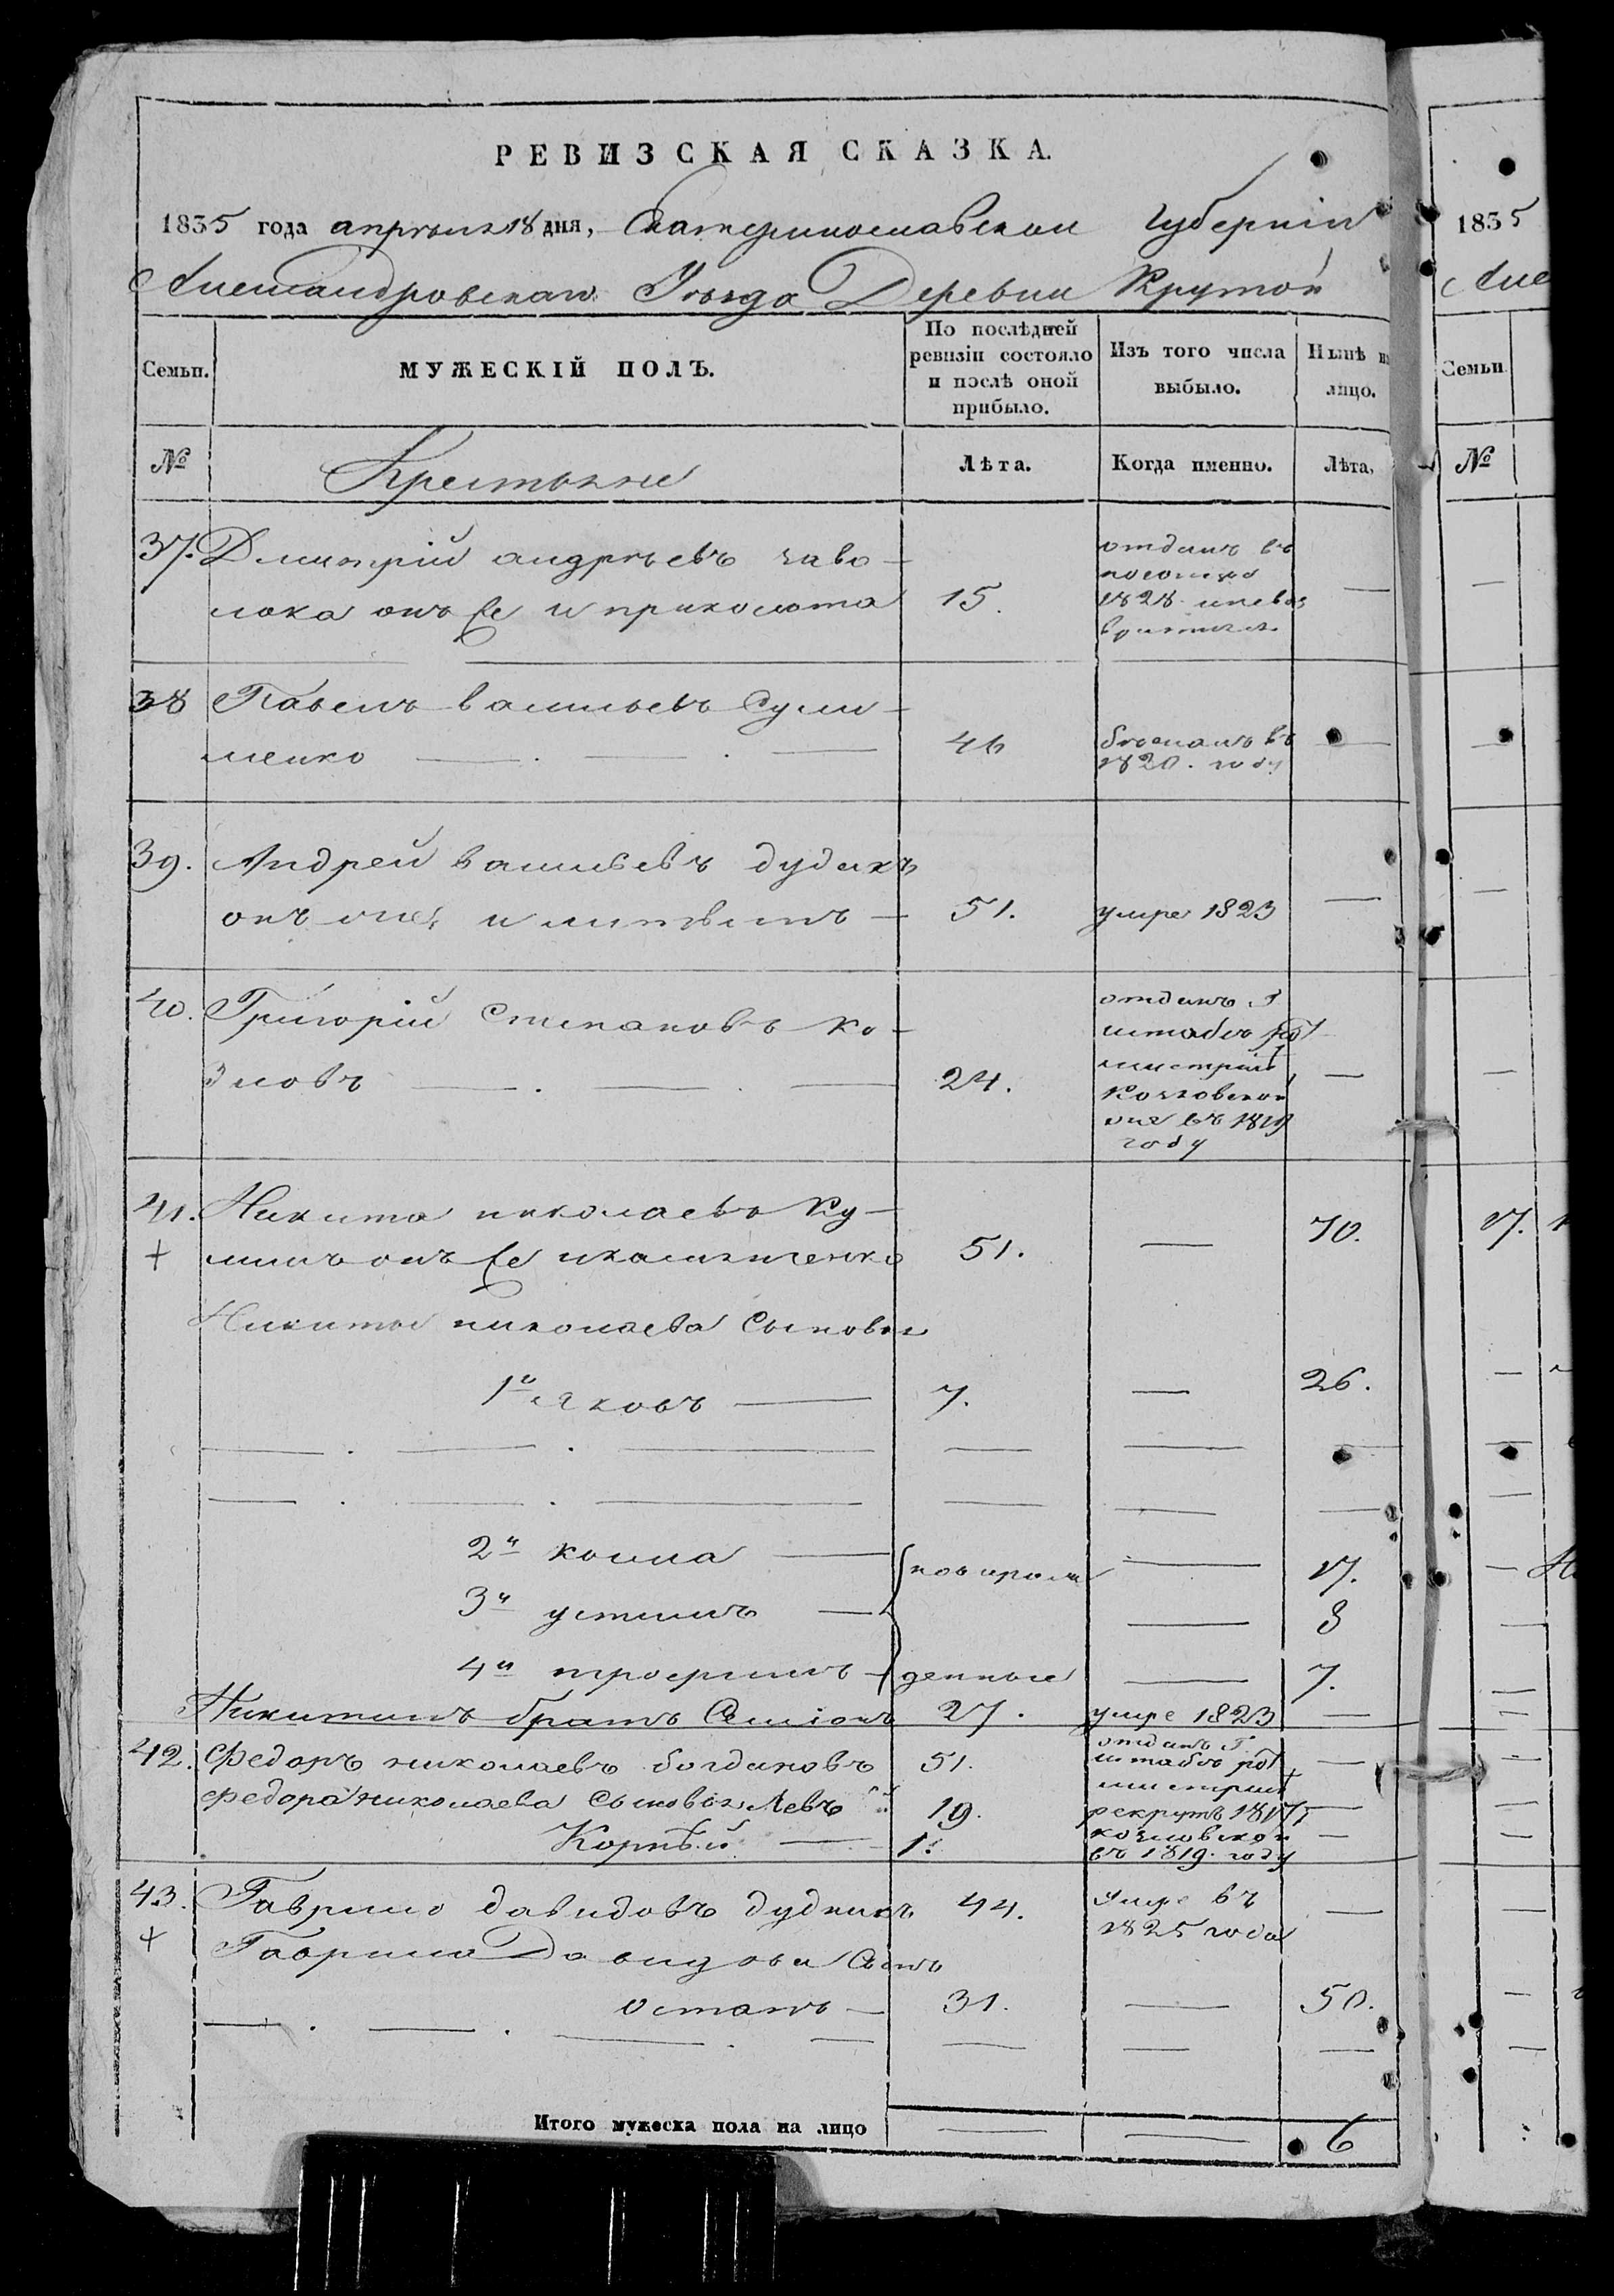 РЕВИЗСКАЯ СКАЗКА.
1835 года апрѣля 18 дня, Екатеринославской Губерніи
Александровскаго Уѣзда Деревни Крутой
Семьи.
МУЖЕСКІЙ ПОЛЪ.
По послѣдней ревизіи состояло и послѣ оной прибыло.
Изъ того числа выбыло.
Нынѣ на лицо.
№
Крестьяне
Лѣта.
Когда именно.
Лѣта,
37. Дмитрій андрѣевъ заво-
лока онъ же и приколота 15. —
отданъ въ
1828
38 Павелъ васильевъ Сули-
менко — . — . — 46 —
бѣжалъ въ
1820. году
39. Андрей васильевъ дудакъ
онъ же и литвинъ — 51. умре 1823 —
40. Григорій Степановъ Ко-
зловъ — . — . — 24. —
отданъ Г
штабъ рот
мистрше
Козловской
въ 1819
году
41. Никита николаевъ Ку-
+ онъ же 51. — 70.
Никиты николаева Сыновья
1й яковъ — 7. — 26.
2й козма — новорож — 17.
3й устинъ — — 8
4й трофимъ — денные — 7.
Никитинъ братъ Семіонъ 27. умре 1823 —
42. Федоръ николаевъ богдановъ 51. —
отданъ Г
штабъ рот
мистрше
Федора николаева Сыновья Левъ 19. рекрутъ 1817 —
Корнѣй — 1. козловской —
въ 1819. году
43. Гаврило давидовъ дудникъ 44. умре въ —
+ 1825 года
Гаврила Давидова Сынъ
остапъ — 31. — 50.
Итого мужеска пола на лицо — — 6
1835
Але
Семьи
№
17.